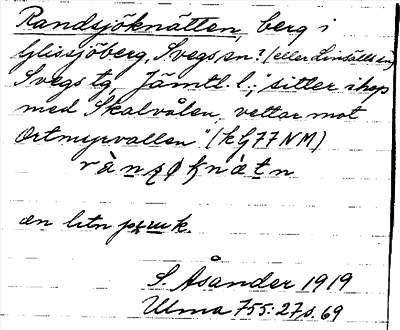 Randsjöknätten, berg i
Glissjöberg, Svegs sn? (eller Linsälls sn)
Svegs tg, Jämtl. l.; "sitter ihop
med Skalvålen, vettar mot
Ortmyrvallen" (kG77NM)
en liten
S. Åsander 1919
Ulma 755:27 s. 69